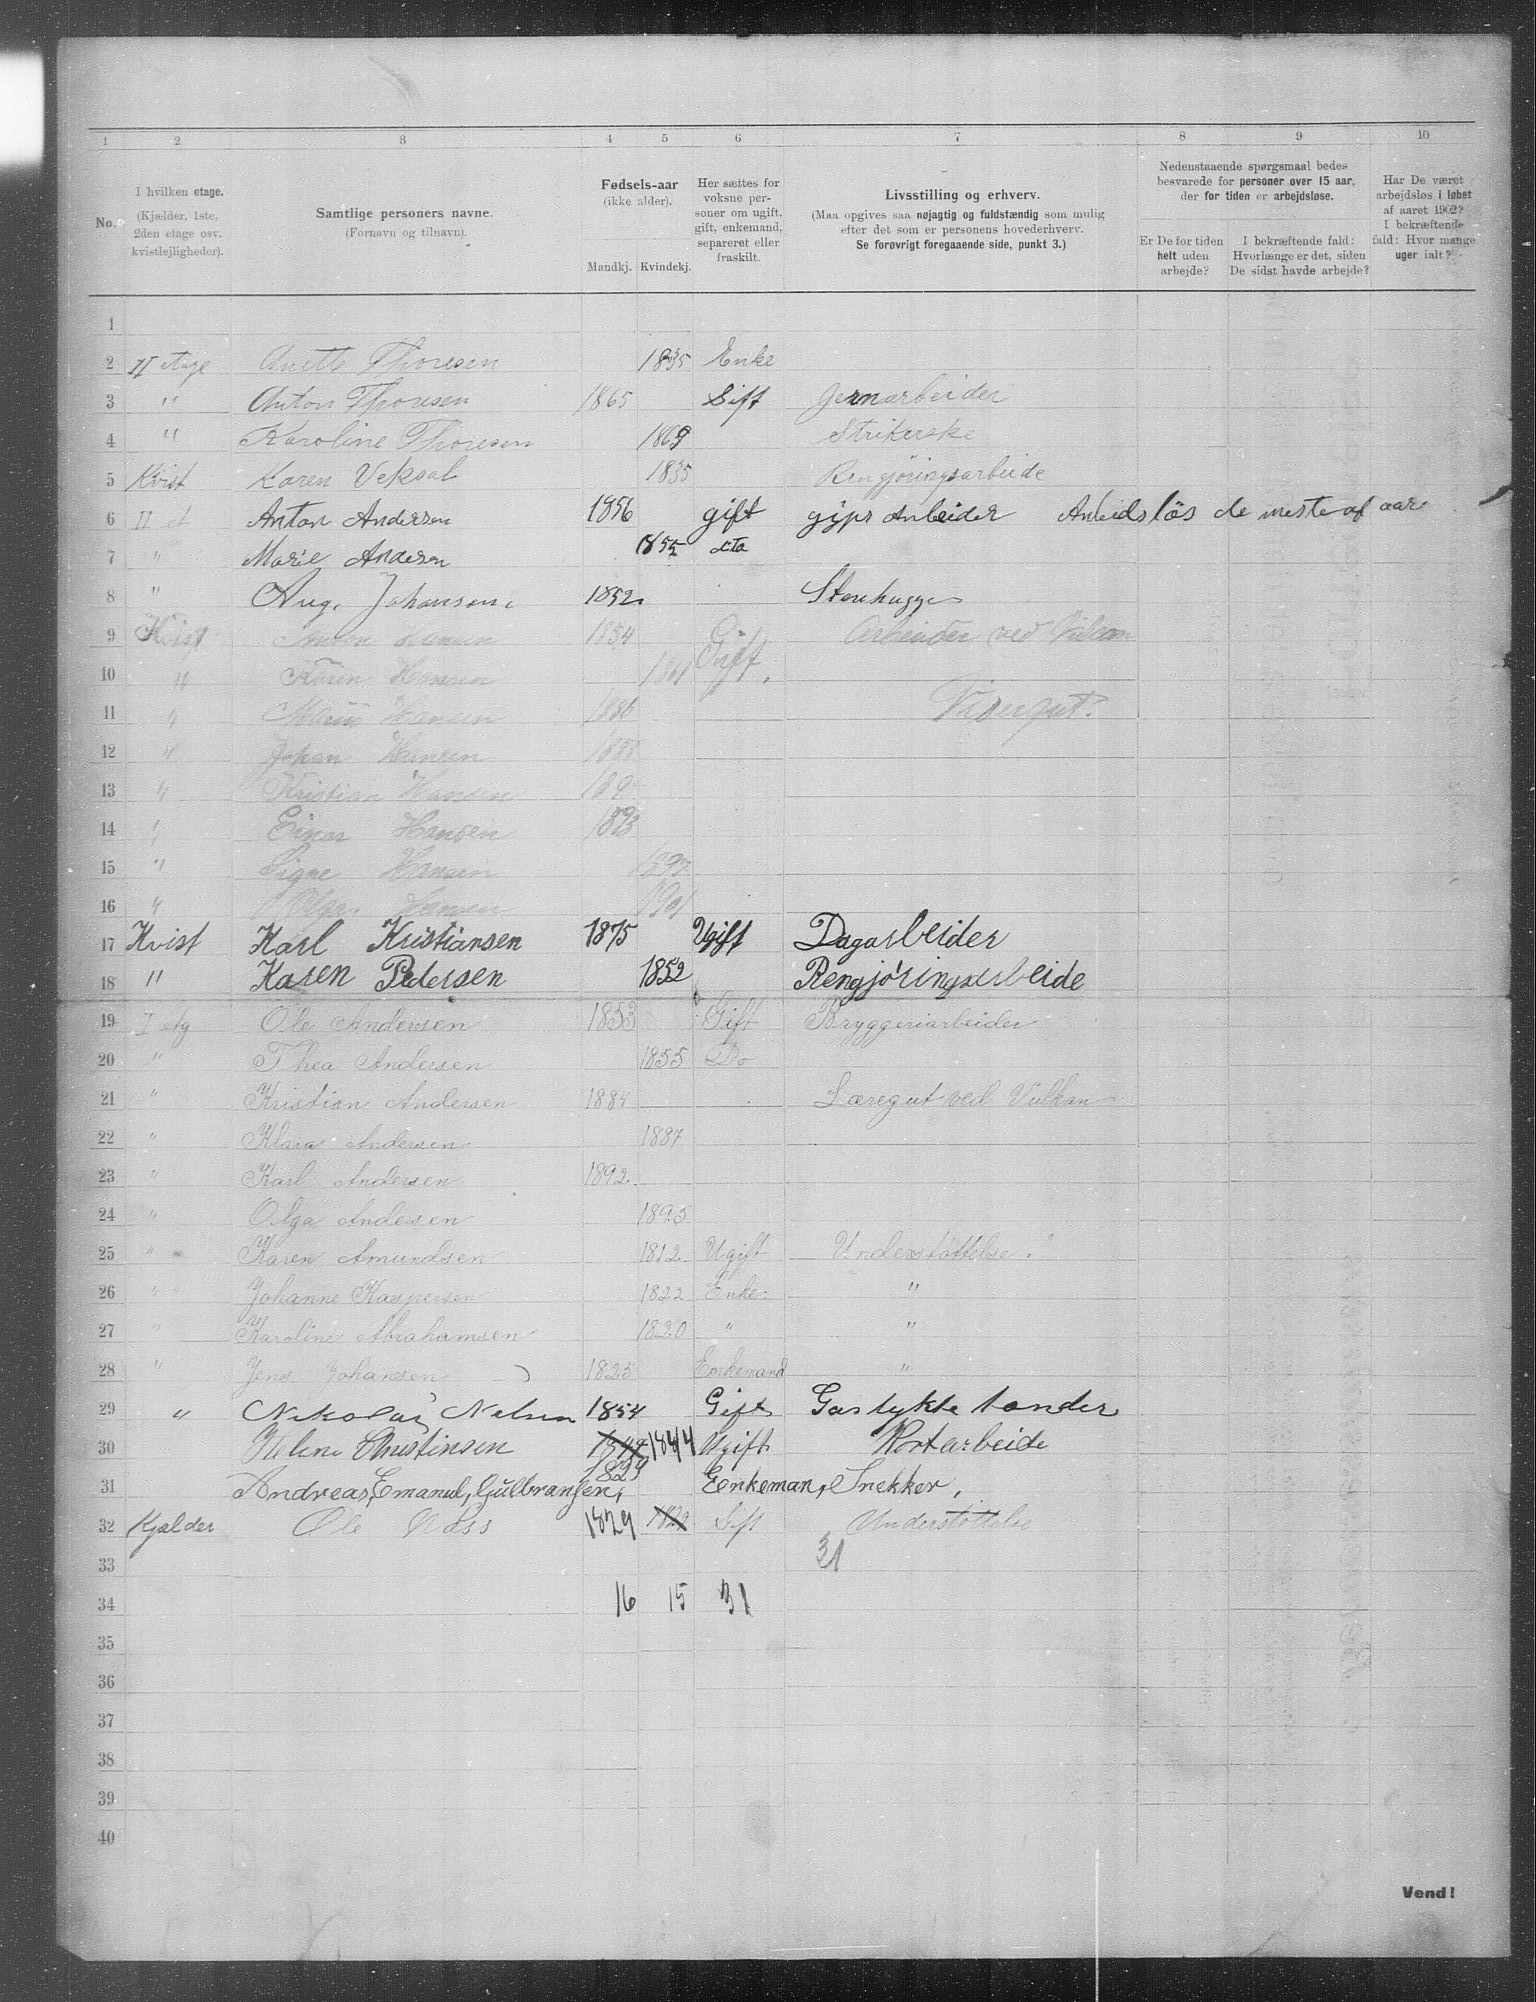 1 2 3 4 5 6 7 8 9 10
No.
I hvilken etage.
(Kjælder, 1ste, 2den etage osv. kvistlejligheder).
Samtlige personers navne.
(Fornavn og tilnavn).
Fødsels-aar
(ikke alder).
Mandkj. Kvindekj.
Her sættes for voksne personer om ugift, gift, enkemand, separeret eller fraskilt.
Livsstilling og erhverv.
(Maa opgives saa nøjagtig og fuldstændig som mulig efter det som er personens hovederhverv.
Se forøvrigt foregaaende side, punkt 3.)
Nedenstaaende spørgsmaal bedes besvarede for personer over 15 aar, der for tiden er arbejdsløse.
Er De for tiden helt uden arbejde?
I bekræftende fald: Hvorlænge er det, siden De sidst havde arbejde?
Har De været arbejdsløs i løbet af aaret 1902? I bekræftende fald: Hvor mange uger ialt?
1
2 II etage Anette Thoresen 1835 Enke
3 " Anton Thoresen 1865 Gift Jernarbeider
4 " Karoline Thoresen 1869 Strikerske
5 Kvist Karen Veksal 1835 Rengjøringsarbeide
6 II et Anton Andersen 1856 gift gips Arbeider Arbeidsløs de meste af aar
7 " Marie Andersen 1855 dto
8 " Aug. Johansen. 1852 Stenhugger
9 Kvist Anton Hansen 1854 Gift Arbeider ved Vulcan
10 " Karen Hansen 1861 Gift.
11 " Marius Hansen 1886 Visergut.
12 " Johan Hansen 1888
13 " Kristian Hansen 189
14 " Einar Hansen 1893
15 " Signe Hansen 1897
16 " Olga Hansen 1901
17 Kvist Karl Kristiansen 1875 Ugift Dagarbeider
18 " Karen Pedersen 1852 Rengjøringsarbeide
19 I etg Ole Andersen 1853 Gift Bryggeriarbeider
20 " Thea Andersen 1855 Do
21 " Kristian Andersen 1884 Læregut ved Vulkan
22 " Klara Andersen 1887
23 " Karl Andersen 1892
24 " Olga Andersen 1895
25 " Karen Amundsen 1812 Ugift Understøttelse.
26 " Johanne Kaspersen 1822 Enke "
27 " Karoline Abrahamsen 1820 " "
28 " Jens Johansen 1825 Enkemand "
29 " Nikolai Nelsen 1854 Gift Gaslykte tænder
30 Helene Christinsen 1844 1844 Ugift Portarbeide
31 Andreas, Emanuel, Gulbransen, 1824 Eenkeman, Snekker,
32 Kjælder Ole Næss 1829 1829 Gift Understøttelse
33 31
34 16 15 31
35
36
37
38
39
40
Vend!